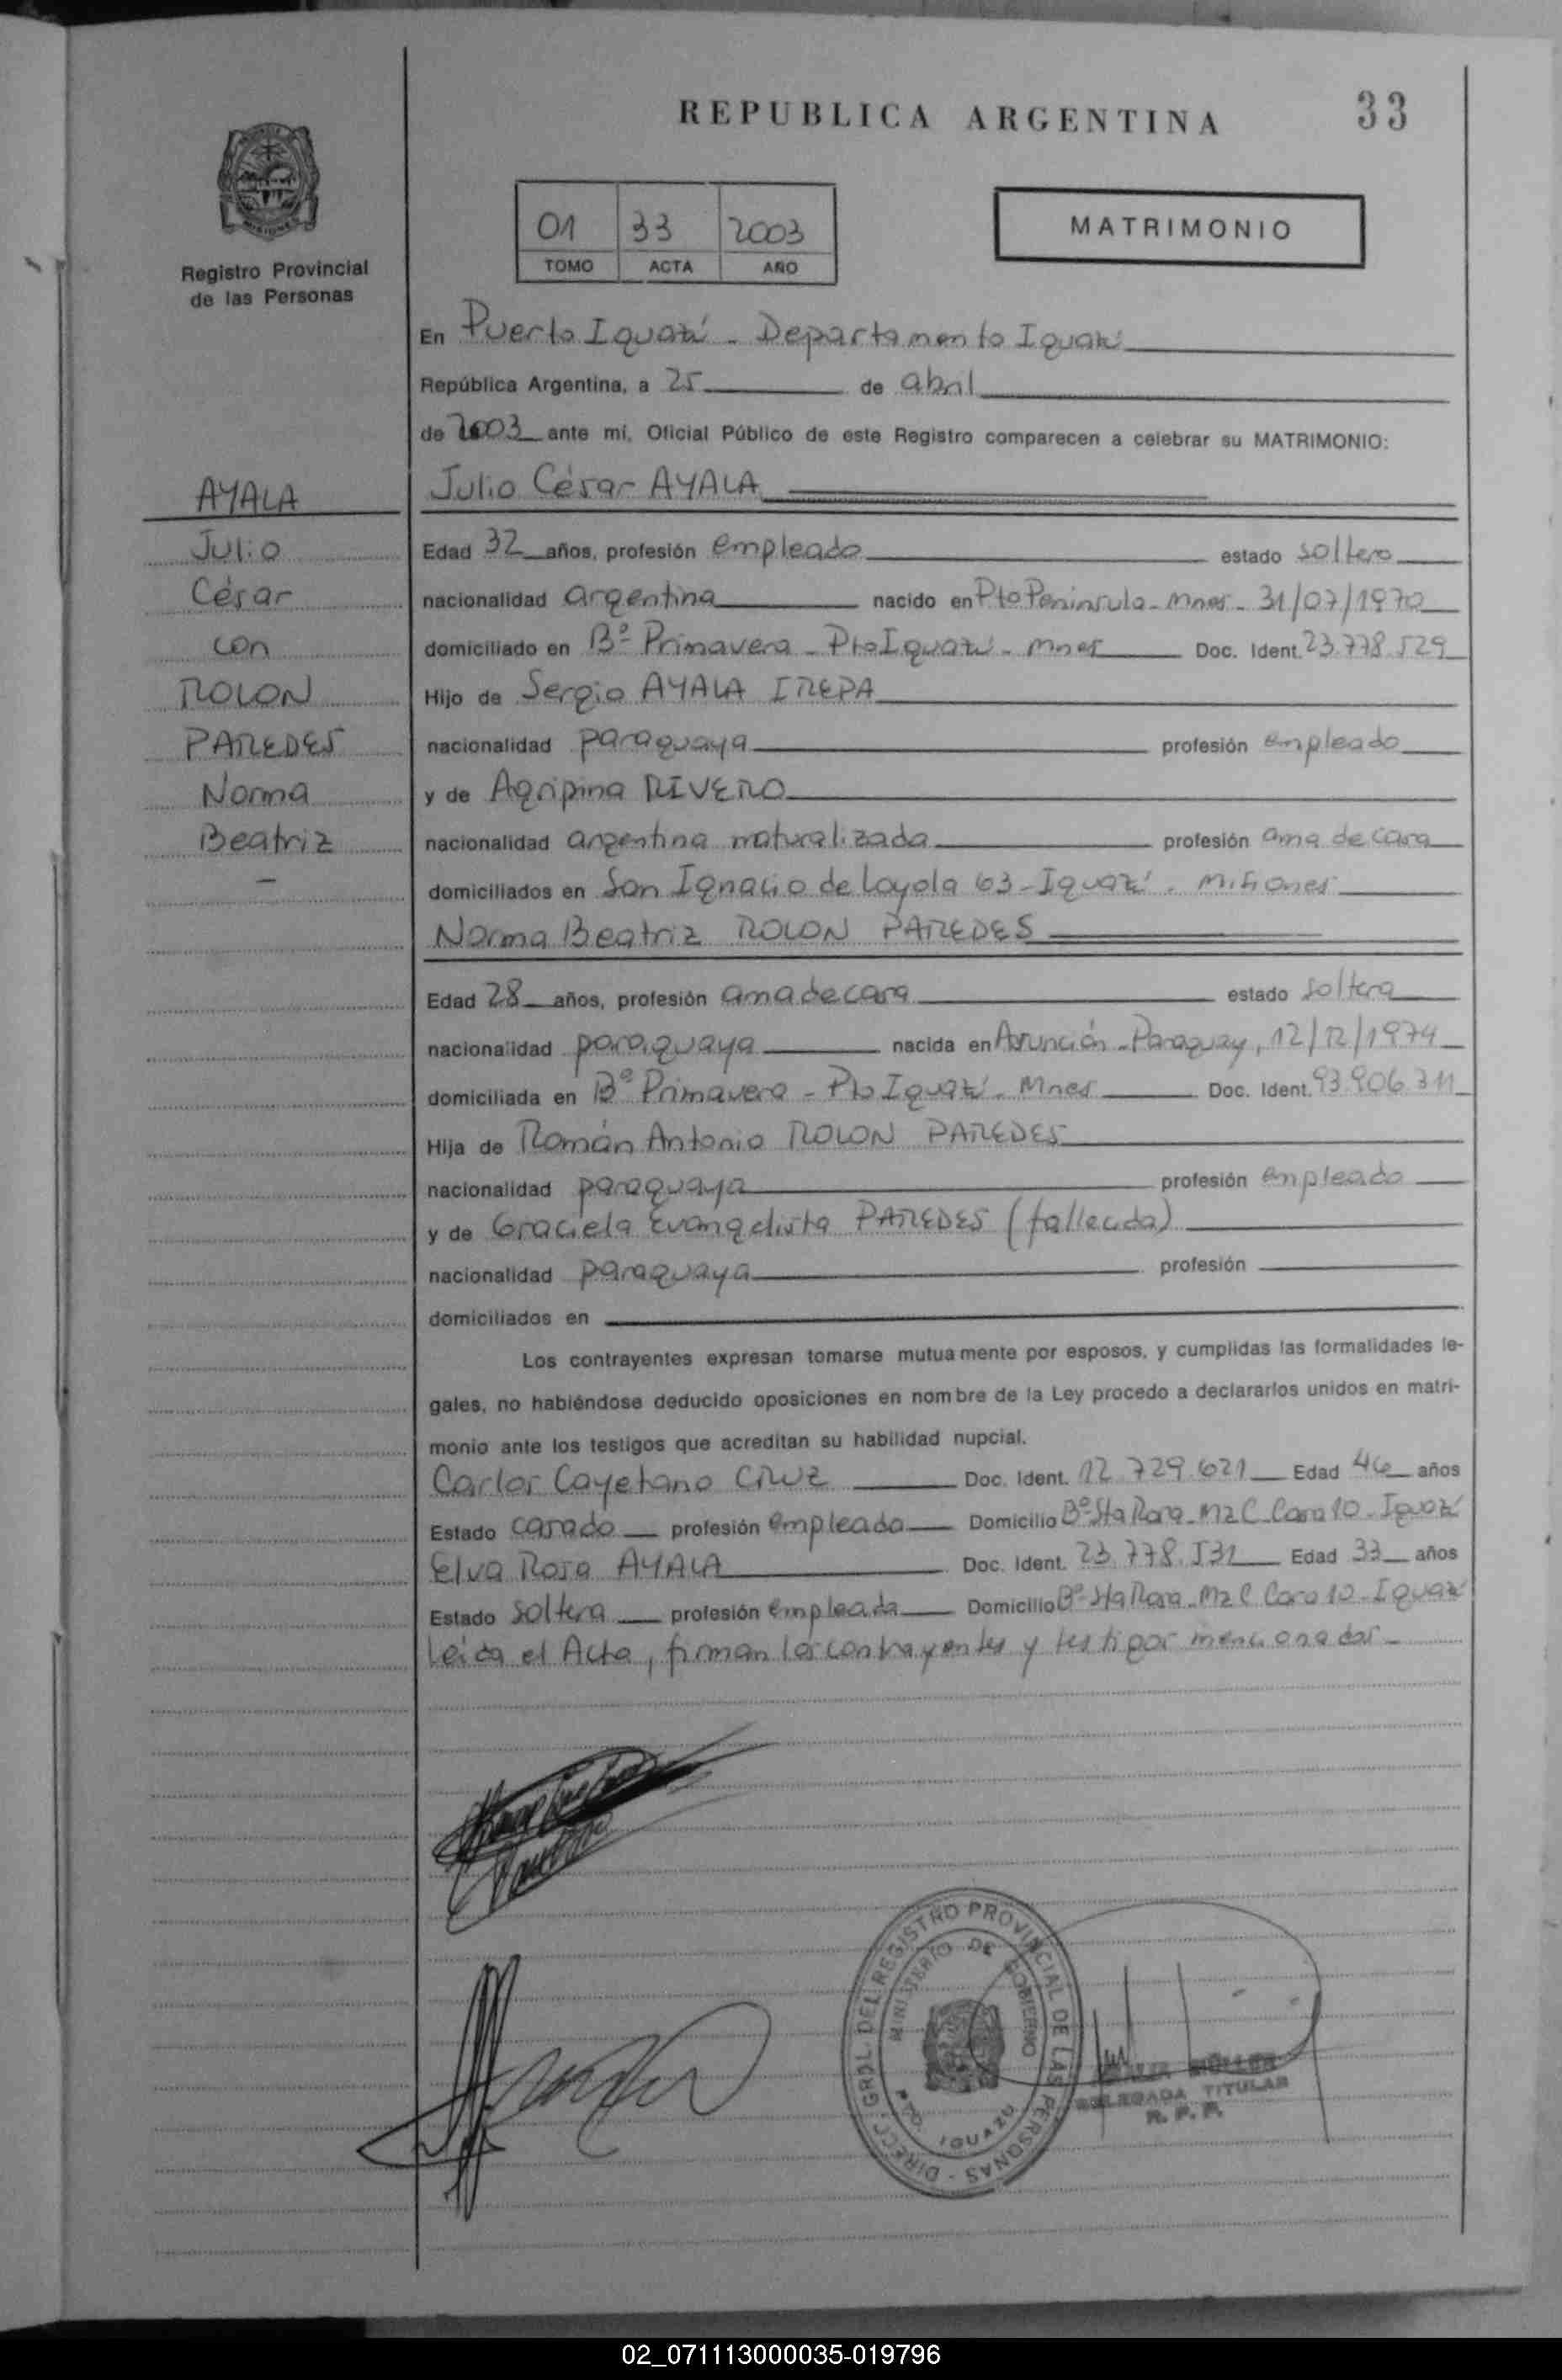 REPUBLICA ARGENTINA
33
01 33 2003
TOMO ACTA AÑO
MATRIMONIO
Registro Provincial
de las Personas
En Puerto Iguazú - Departamento Iguazú
República Argentina, a 25 de abril
de 2003 ante mí, Oficial Público de este Registro comparecen a celebrar su MATRIMONIO:
AYALA
Julio
César
con
ROLON
PAREDES
Norma
Beatriz
-
Julio César AYALA
Edad 32 años, profesión empleado estado soltero
nacionalidad argentina nacido en Pto Península - Mnes - 31/07/1970
domiciliado en Bº Primavera - Pto Iguazú - Mnes Doc. Ident. 23.778.529
Hijo de Sergio AYALA IREPA
nacionalidad paraguaya profesión empleado
y de Agripina RIVERO
nacionalidad argentina naturalizada profesión ama de casa
domiciliados en San Ignacio de Loyola 63 - Iguazú - Misiones
Norma Beatriz ROLON PAREDES
Edad 28 años, profesión ama de casa estado soltera
nacionalidad paraguaya nacida en Asunción - Paraguay, 12/12/1974
domiciliada en Bº Primavera - Pto Iguazú - Mnes Doc. Ident. 93.906.311
Hija de Román Antonio ROLON PAREDES
nacionalidad paraguaya profesión empleado
y de Graciela Evangelista PAREDES (fallecida)
nacionalidad paraguaya profesión
domiciliados en
Los contrayentes expresan tomarse mutuamente por esposos, y cumplidas las formalidades le-
gales, no habiéndose deducido oposiciones en nombre de la Ley procedo a declararlos unidos en matri-
monio ante los testigos que acreditan su habilidad nupcial.
Carlos Cayetano CRUZ Doc. Ident. 12.729.621 Edad 46 años
Estado casado profesión empleado Domicilio Bº Sta Rosa - Mz C Casa 10 - Iguazú
Elva Rosa AYALA Doc. Ident. 23.778.531 Edad 33 años
Estado soltera profesión empleada Domicilio Bº Sta Rosa - Mz C Casa 10 - Iguazú
Leída el Acta, firman los contrayentes y testigos mencionados -
DIRECC. GRAL. DEL REGISTRO PROVINCIAL DE LAS PERSONAS -
MINISTERIO DE GOBIERNO
PTO. IGUAZU
MÜLLER
DELEGADA TITULAR
R. P. P.
02_071113000035-019796